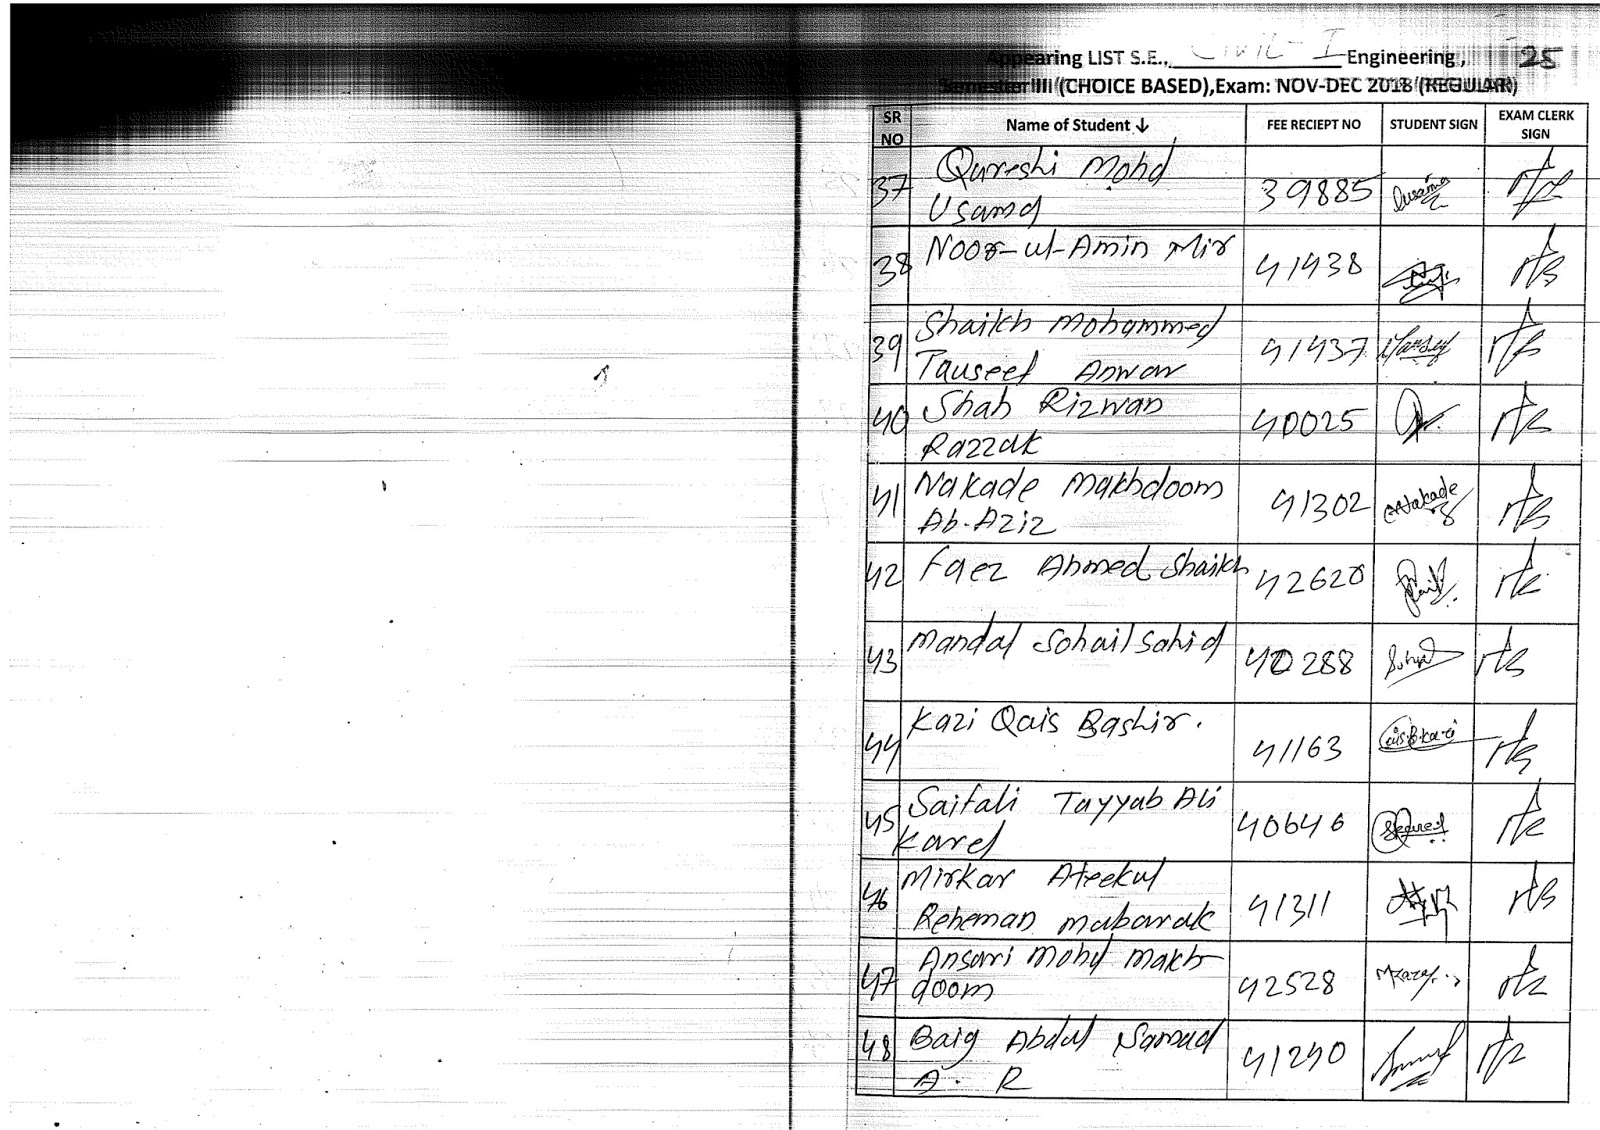 Appearing LIST S.E., Civil-I Engineering, 25
Semester III (CHOICE BASED),Exam: NOV-DEC 2018 (REGULAR)
SR NO Name of Student ↓ FEE RECIEPT NO STUDENT SIGN EXAM CLERK SIGN
37 Qureshi Mohd 39885
Usama
38 Noor-ul-Amin Mir 41438
39 Shaikh Mohammed 41437
Tauseef Anwar
40 Shah Rizwan 40025
Razzak
41 Nakade Makhdoom 41302 Nakade
Ab. Aziz
42 Faez Ahmed Shaikh 42620
43 Mandal Sohail Sahid 40288
44 Kazi Qais Bashir. 41163
45 Saifali Tayyab Ali 40646
Karel
46 Mirkar Ateekul 41311
Reheman Mubarak
47 Ansari Mohd Makh- 42528
doom
48 Baig Abdul Samad 41240
A. R